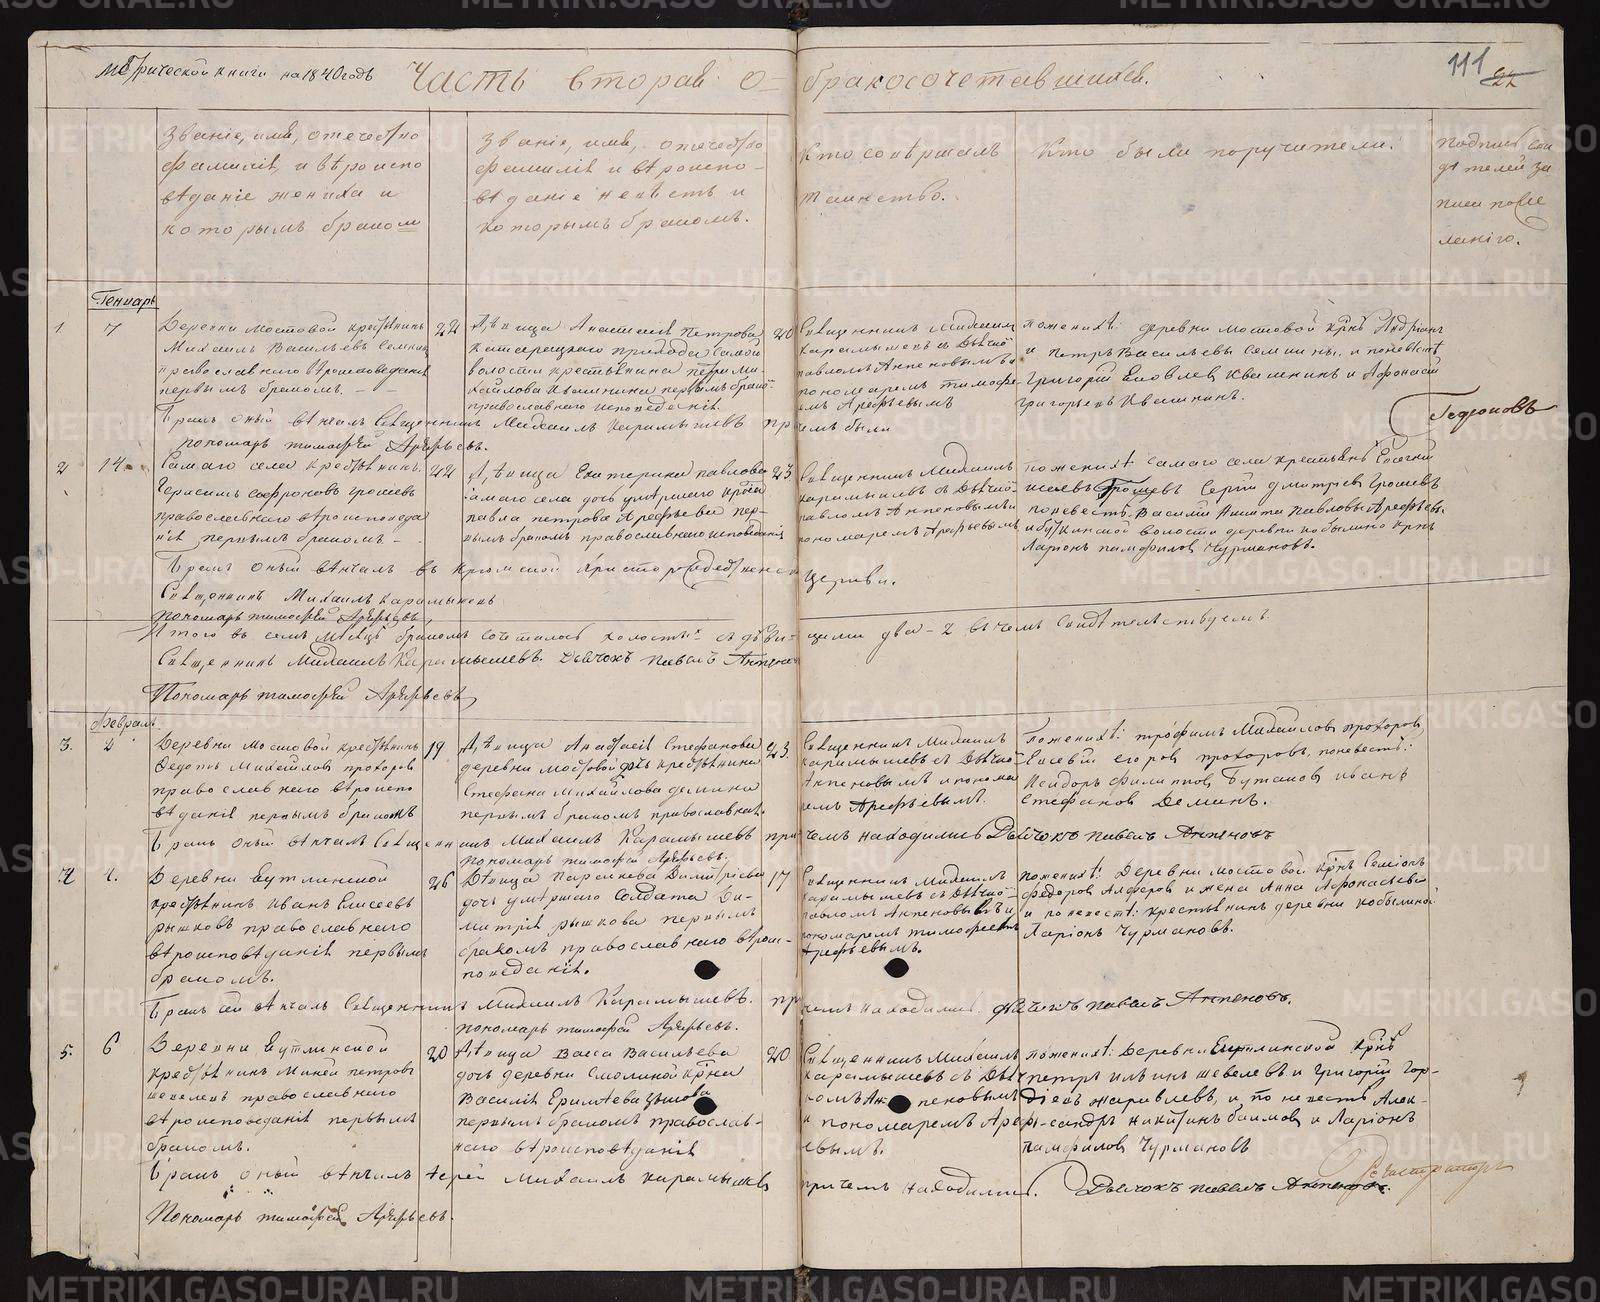 Метрической книги на 1840 годъ
Часть вторая о бракосочетавшихся.
111
22
Званіе, имя, отечество
фамилія, и вѣроиспо
вѣданіе жениха и
которымъ бракомъ
Званіе, имя, отечество
фамилія и вѣроиспо-
вѣданіе невѣсты и
которымъ бракомъ.
Кто совѣршалъ
таинство.
Кто были поручители.
Подпись сви
дѣтелей за
писи по же
ланію.
Генварь
1 7
Деревни мостовой крестьянинъ
Михаилъ Васильевъ Семнинъ
православнаго вѣроисповѣданія
первымъ бракомъ.
22
Дѣвица Анастасія Петрова
волости крестьянина петра Ми
хайлова Квашнина первымъ брако
православнаго исповеданія
20
Священникъ Михаилъ
Карамышевъ съ Дьячко
павломъ Анпеновымъ и
пономаремъ тимофе
емъ Арефьевымъ
По женихѣ: деревни мостовой крнъ Андріанъ
и петръ Васильевы Семнины, и по невѣстѣ
Григорій Яковлевъ Квашнинъ и Афонасій
Григорьевъ Квашнинъ.
Бракъ оный вѣнчалъ Священникъ Михаилъ Карамышевъ при чемъ были
пономарь тимофей Арефьевъ.
2 14
Самаго села крестьянинъ
Герасимъ Софроновъ грошевъ
православнаго вѣроисповеда
нія первымъ бракомъ
22
Дѣвица Екатерина павлова
самаго села дочь умершаго крна
павла петрова Арефьева пер-
вымъ бракомъ православнаго исповѣданія
23
Священникъ Михаилъ
Карамышевъ съ Дьячко-
павломъ Анпеновымъ и
пономаремъ Арефьевымъ
По женихѣ самаго села крестьянъ
Грошевъ Сергій дмитріевъ Грошевъ
по невестѣ: Василій Никита Павловы Арефьевы
волости деревни кобылино крнъ
Ларіонъ памфиловъ Чурмановъ.
Бракъ оный вѣнчалъ въ Христорождественской Церкви.
Священникъ Михаилъ Карамышевъ
пономарь тимофей Арефьевъ
Итого въ семъ мѣсяцѣ бракомъ сочеталось холостыхъ съ дѣви-цами два - 2 въ чемъ свидѣтельствуемъ
Священникъ Михаилъ Карамышевъ. Дьячокъ павелъ Анпеновъ
Пономарь тимофей Арефьевъ
Февраль
3. 2
Деревни мостовой крестьянинъ
Федотъ Михайловъ прохоровъ
православнаго вѣроиспо
вѣданія первымъ бракомъ
19
Дѣвица Анастасія Стефанова
деревни мостовой дочь крестьянина
Стефана Михайлова демина
первымъ бракомъ православнаго
23.
Священникъ Михаилъ
Карамышевъ съ Дьячко-
Анпеновымъ и понома
ремъ Арефьевымъ.
По женихѣ: трофимъ Михайловъ прохоровъ
Евсевій егоровъ прохоровъ, по невестѣ:
Исидоръ филиповъ Бутаковъ иванъ
Стефановъ Деминъ.
Бракъ оный вѣнчалъ Священникъ Михаилъ Карамышевъ при чемъ находились Дьячокъ павелъ Анпеновъ
пономарь тимофей Арефьевъ.
4 4.
Деревни Бутлинской
крестьянинъ Иванъ Елисеевъ
рышковъ православнаго
вѣроисповѣданія первымъ
бракомъ.
26
Дѣвица Параскева Димитріева
дочь умершаго Солдата Ди-
митрія рышкова первымъ
бракомъ православнаго вѣроис-
поведанія.
17
Священникъ Михаилъ
Карамышевъ съ Дьячко-
павломъ Анпеновымъ и
пономаремъ тимофеемъ
Арефьевымъ.
По женихѣ: Деревни мостовой крнъ Семіонъ
федоровъ Алферовъ и жена Анна Афонасьева
и по невестѣ: крестьянинъ деревни кобылиной
Ларіонъ Чурмановъ.
Бракъ сей вѣнчалъ Священникъ Михаилъ Карамышевъ. при чемъ находились дьячокъ павелъ Анпеновъ.
пономарь тимофей Арефьевъ.
5. 6
Деревни Бутлинской
крестьянинъ Миней петровъ
шевелевъ православнаго
вѣроисповеданія первымъ
бракомъ.
20
Дѣвица Васса Васильева
дочь деревни Смолиной крна
Василія
первымъ бракомъ православ-
наго вѣроисповѣданія
20
Священникъ Михаилъ
Карамышевъ съ Дьяч
комъ Анпеновымъ
и пономаремъ Арефь
евымъ.
По женихѣ: Деревни крнъ
петръ ильинъ шевелевъ и григорій Гор-
діевъ жаравлевъ, и по невестѣ Алек-
сандръ никитинъ баимовъ и Ларіонъ
памфиловъ Чурмановъ
Бракъ оный вѣнчалъ Іерей Михаилъ Карамышевъ причемъ находились. Дьячокъ павелъ Анпеновъ.
Пономарь тимофей Арефьевъ.
Регистраторъ
METRIKI.GASO-URAL.RU